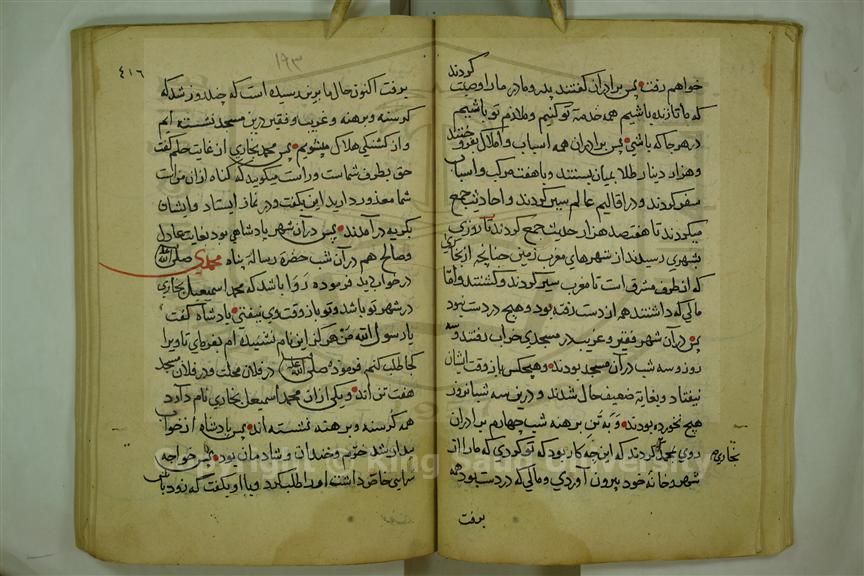 خواهم رفت پس برادران کفتند پدر و مادر ما را وصیت کردند
که ما تا زنده باشیم همه خدمة تو کنیم و ملازم تو باشیم
در هر جا که باشی پس برادران همه اسباب و املاک بفروختند
و هزار دینار طلا بمیان بستند و با هفت مرکب و اسباب
سفر کردند و در اقالیم عالم سیر کردند و احادیث جمع
میکردند تا هفتصد هزار حدیث جمع کردند تا روزی
بشهری رسیدند از شهرهای مغرب زمین چنانچه از بخاری
که از طرف مشرق است تا مغرب سیر کردند و کشتند و امّا
مالی که داشتند هم از دست رفته بود و هیچ در دست نبود
پس در آن شهر فقیر و غریب در مسجدی خواب رفتند و سه
روز و سه شب در آن مسجد بودند و هیچکس باز وقت ایشان
نیفتاد و بغایة ضعیف حال شدند و درین سه شبانروز
هیچ نخورده بودند و به تن برهنه شب چهارم برادران
روی بمحمد کردند که این چه کار بود که تو کردی که ما را از
بخاری
شهر و خانهٔ خود بیرون آوردی و مالی که در دست بود همه
برفت
٤١٦
١٩٣
برفت اکنون حال ما برین رسیده است که چند روز شد که
کرسنه و برهنه و غریب و فقیر درین مسجد نشسته ایم
و از کشنکی هلاک میشویم پس محمد بخاری از غایت حلم کفت
حق بطرف شماست و راست میکویید که کناه از من است
شما معذور دارید این بکفت و در نماز ایستاد و ایشان
بکریه در آمدند پس در آن شهر پادشاهی بود بغایت عادل
و صالح هم در آن شب حضرة رسالة پناه محمدی صلی الله علیه
در خواب دید فرموده روا باشد که محمد اسمیعل بخاری
در شهر تو باشد و تو باز وقت وی نیفتی پادشاه کفت
یا رسول الله من هرکز این نام نشنیده ام بفرمای تا ویرا
کجا طلب کنم فرموده صلی الله علیه در فلان محلت و در فلان مسجد
هفت تن اند و یکی از ان محمد اسمیعل بخاری نام دارد
همه کرسنه و برهنه نشسته اند پس پادشاه از خواب
بیدار شد خرّم و خندان و شادمان بود پس خواجه
سرایی خاص داشت او را طلب کرد و با او بکفت که زود باش
Copyright © King Saud University